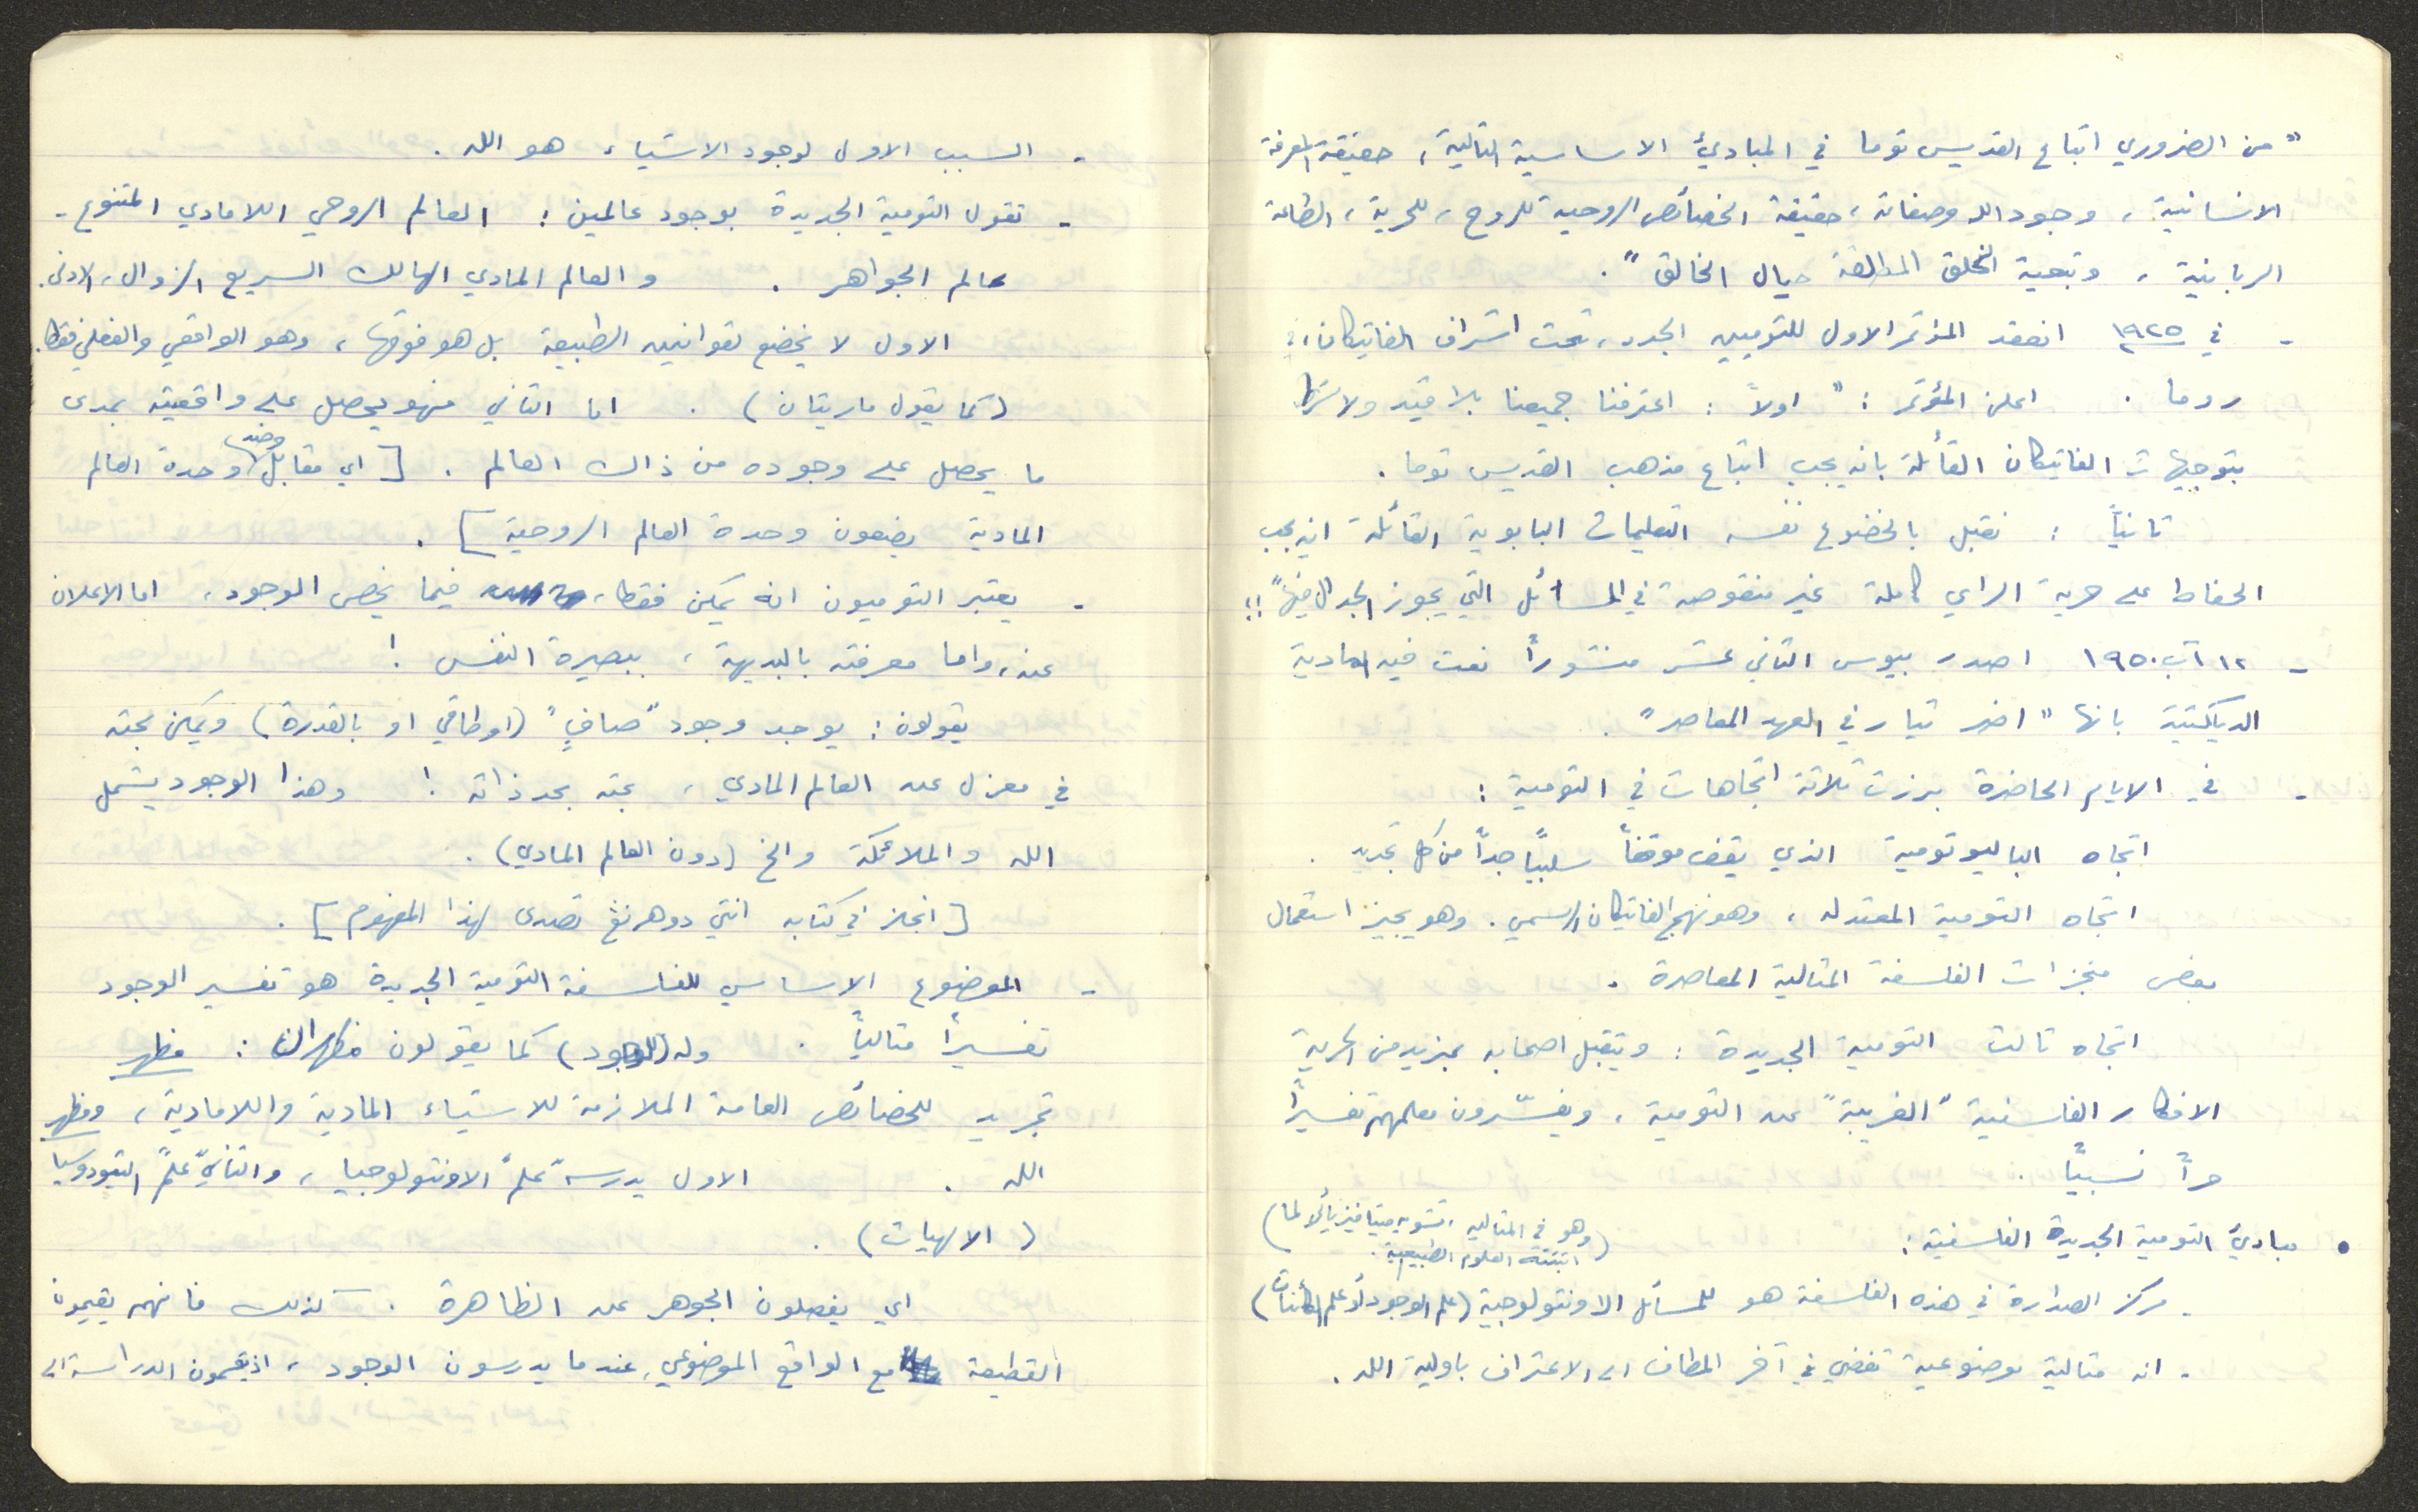 "من الضروري اتباع القديس توما في المبادئ الاساسية التالية، حقيقة المعرفة
الانسانية، وجود الله وصفاته، حقيقة الخصائص الروحية للروح، للحرية، الطاعة
الربانية، وتبعية الخلق المطلقة حيال الخالق".
- في ١٩٢٥ انعقد المؤتمر الاول للتوميين الجدد، تحت اشراف الفاتيكان، في
روما. اعلن المؤتمر: "اولاً: اعترفنا جميعنا بلا قيد ولا شرط
بتوجيهات الفاتيكان القائلة بانه يجب اتباع مذهب القديس توما.
ثانياً: نقبل بالخضوع نفسه التعليمات البابوية القائلة انه يجب
الحفاظ على حرية الراي كاملة غير منقوصة في المسائل التي يجوز الجدال فيها"!!
- ١٢ آب ١٩٥٠ اصدر بيوس الثاني عشر منشوراً نعت فيه المادية
الديالكتية بانها "اخطر تيار في العهد المعاصر".
- في الايام الحاضرة برزت ثلاثة اتجاهات في التومية:
اتجاه الباليوتومية الذي يقف موقفاً سلبياً جداً من كل تجديد.
اتجاه التومية المعتدله، وهو نهج الفاتيكان الرسمي. وهو يجيز استعمال
بعض منجزات الفلسفة المثالية المعاصرة.
اتجاه ثالث التومية الجديدة: ويتقبل اصحابه بمزيد من الحرية
الافكار الفلسفية "الغريبة" عن التومية، ويفسّرون معلمهم تفسيراً
حراً نسبياً.
• مبادئ التومية الجديدة الفلسفية: (وهو في المثاليه، تشويه ميتافيزيائي لما)
(اثبتته العلوم الطبيعية.
- مركز الصدارة في هذه الفلسفة هو للمسائل الاونتولوجية (علم الوجود أو علم الكائنات)
- انه مثالية موضوعية تفضي في آخر المطاف الى الاعتراف باولية الله.
- السبب الاول لوجود الاشياء، هو الله.
- تقول التومية الجديدة بوجود عالمين: العالم الروحي اللامادي المتنوع -
عالم الجواهر. والعالم المادي الهالك السريع الزوال، الادنى.
الاول لا يخضع لقوانين الطبيعة بل هو فوقها، وهو الواقعي والفعلي فقط.
(كما يقول ماريتان). اما الثاني فهو يحصل على واقعيته بمدى
ما يحصل على وجوده من ذاك العالم. [اي مقابل وضد وحدة العالم
المادية يضعون وحدة العالم الروحية].
- يعتبر التوميون انه يمكن فقط، فيما يخص الوجود، اما الاعلان
عنه، واما معرفته بالبديهة، ببصيرة النفس!
يقولون: يوجد وجود "صافٍ" (او طاقي او بالقدرة) ويمكن بحثه
في معزل عن العالم المادي، بحثه بحد ذاته! وهذا الوجود يشمل
الله والملائكة والخ (دون العالم المادي).
[انجلز في كتابه انتي دوهرنغ تصدى لهذا المفهوم].
- الموضوع الاساسي للفلسفة التومية الجديدة هو تفسير الوجود
تفسيراً مثالياً. وله (للوجود) كما يقولون مظهران: مظهر
تجريد للخصائص العامة الملازمة للاشياء المادية واللامادية، ومظهر
الله. الاول يدرسه "علم" الاونتولوجيا، والثاني "علم" التيودوسيا
(الالهيات).
اي يفصلون الجوهر عن الظاهرة. كذلك فانهم يقيمون
القطيعة مع الواقع الموضوعي، عندما يدرسون الوجود، اذ يقيمون الدراسة الى